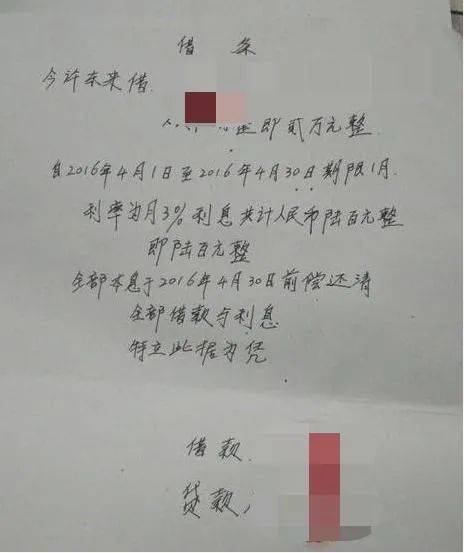 借条
今许东来借
即贰万元整
自2016年4月1日至2016年4月30日期限1月.
利率为月3%利息共计人民币陆百元整
即陆百元整
全部本息于2016年4月30日前偿还清
全部借款与利息
特立此据为凭
借款
贷款,